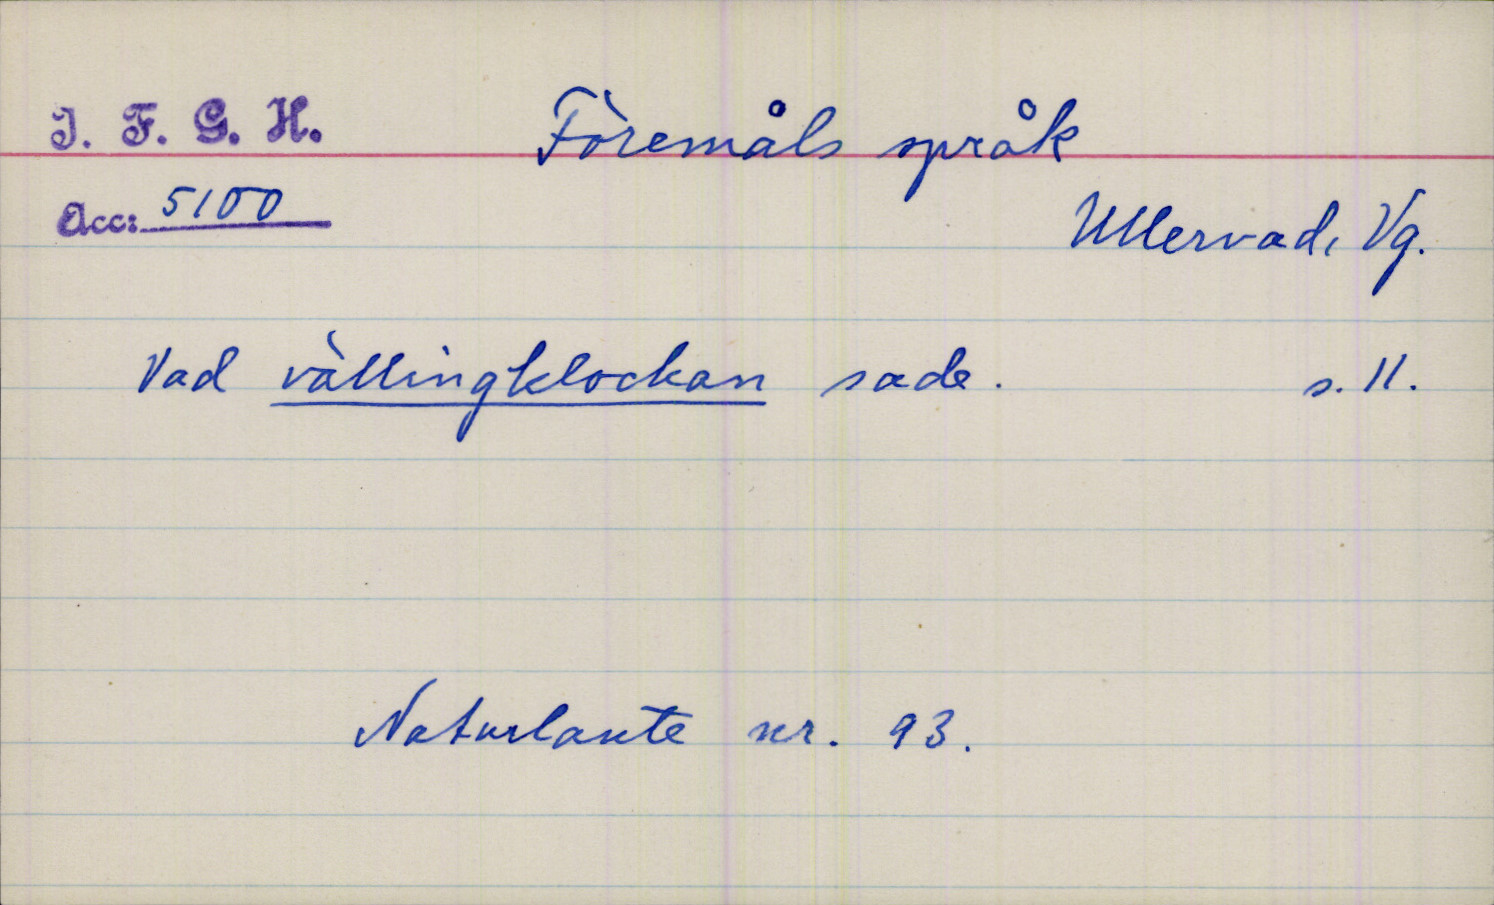 I. F. G. H.
Föremåls språk
Acc: 5100
Ullervad, Vg.
Vad vällingklockan sade. s. 11.
Naturlaute nr. 93.